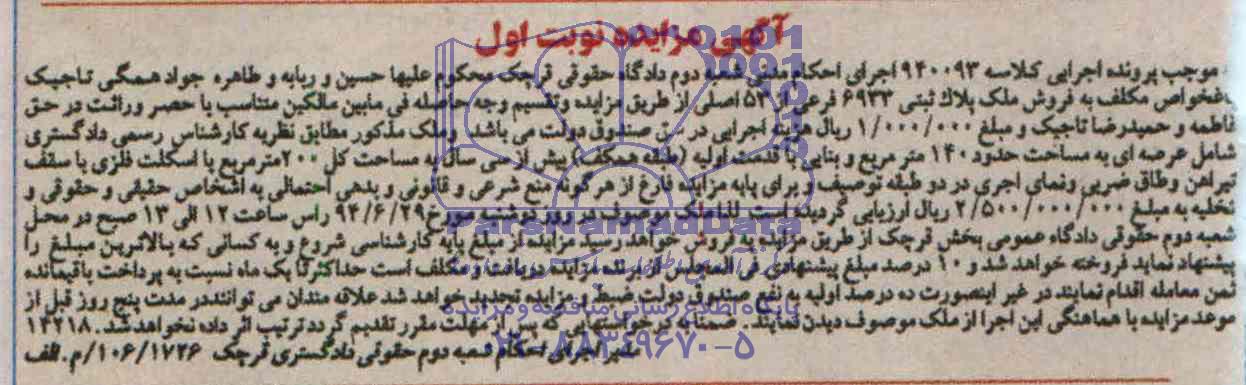 آگهی مزایده نوبت اول
موجب پرونده اجرایی کلاسه ۹۴۰۰۹۳ اجرای احکام مدنی شعبه دوم دادگاه حقوقی قرچک محکوم علیها حسین و ربابه و طاهره جواد همگی تاجیک
مکلف به فروش ملک پلاک ثبتی ۶۹۳۳ فرعی از ۵۳ اصلی از طریق مزایده وتقسیم وجه حاصله فی مابین مالکین متناسب با حصر وراثت در حق
فاطمه و حمیدرضا تاجیک و مبلغ ۱/۰۰۰/۰۰۰ ریال هزینه اجرایی در حق صندوق دولت می باشد وملک مذکور مطابق نظریه کارشناس رسمی دادگستری
شامل عرصه ای به مساحت حدود ۱۴۰ متر مربع و بنایی با قدمت اولیه (طبقه همکف) بیش از سی سال به مساحت کل ۲۰۰مترمربع با اسکلت فلزی با سقف
تیراهن وطاق ضربی ونمای آجری در دو طبقه توصیف و برای پایه مزایده فارغ از هر گونه منع شرعی و قانونی و بدهی احتمالی به اشخاص حقیقی و حقوقی و
تخلیه به مبلغ ۲/۵۰۰/۰۰۰/۰۰۰ ریال ارزیابی گردیده است لذا ملک موصوف در روز دوشنبه مورخ ۹۴/۶/۲۹ راس ساعت ۱۲ الی ۱۳ صبح در محل
شعبه دوم حقوقی دادگاه عمومی بخش قرچک از طریق مزایده به فروش خواهد رسید مزایده از مبلغ پایه کارشناسی شروع و به کسانی که بالاترین مبلغ را
پیشنهاد نماید فروخته خواهد شد و ۱۰ درصد مبلغ پیشنهادی فی المجلس از برنده مزایده دریافت و مکلف است حداکثرتا یک ماه نسبت به پرداخت باقیمانده
ثمن معامله اقدام نمایند در غیر اینصورت ده درصد اولیه به نفع صندوق دولت ضبط و مزایده تجدید خواهد شد علاقه مندان می توانند در مدت پنج روز قبل از
موعد مزایده با هماهنگی این اجرا از ملک موصوف دیدن نمایند. ضمنا به درخواستهایی که پس از مهلت مقرر تقدیم گردد ترتیب اثر داده نخواهد شد. ۱۴۲۱۸
مدیر اجرای احکام شعبه دوم حقوقی دادگستری قرچک ۱۰۶/۱۷۲۶/م.الف
ParsNamadData
پایگاه اطلاع رسانی مناقصه و مزایده
۰۲۱-۸۸۳۴۹۶۷۰-۵